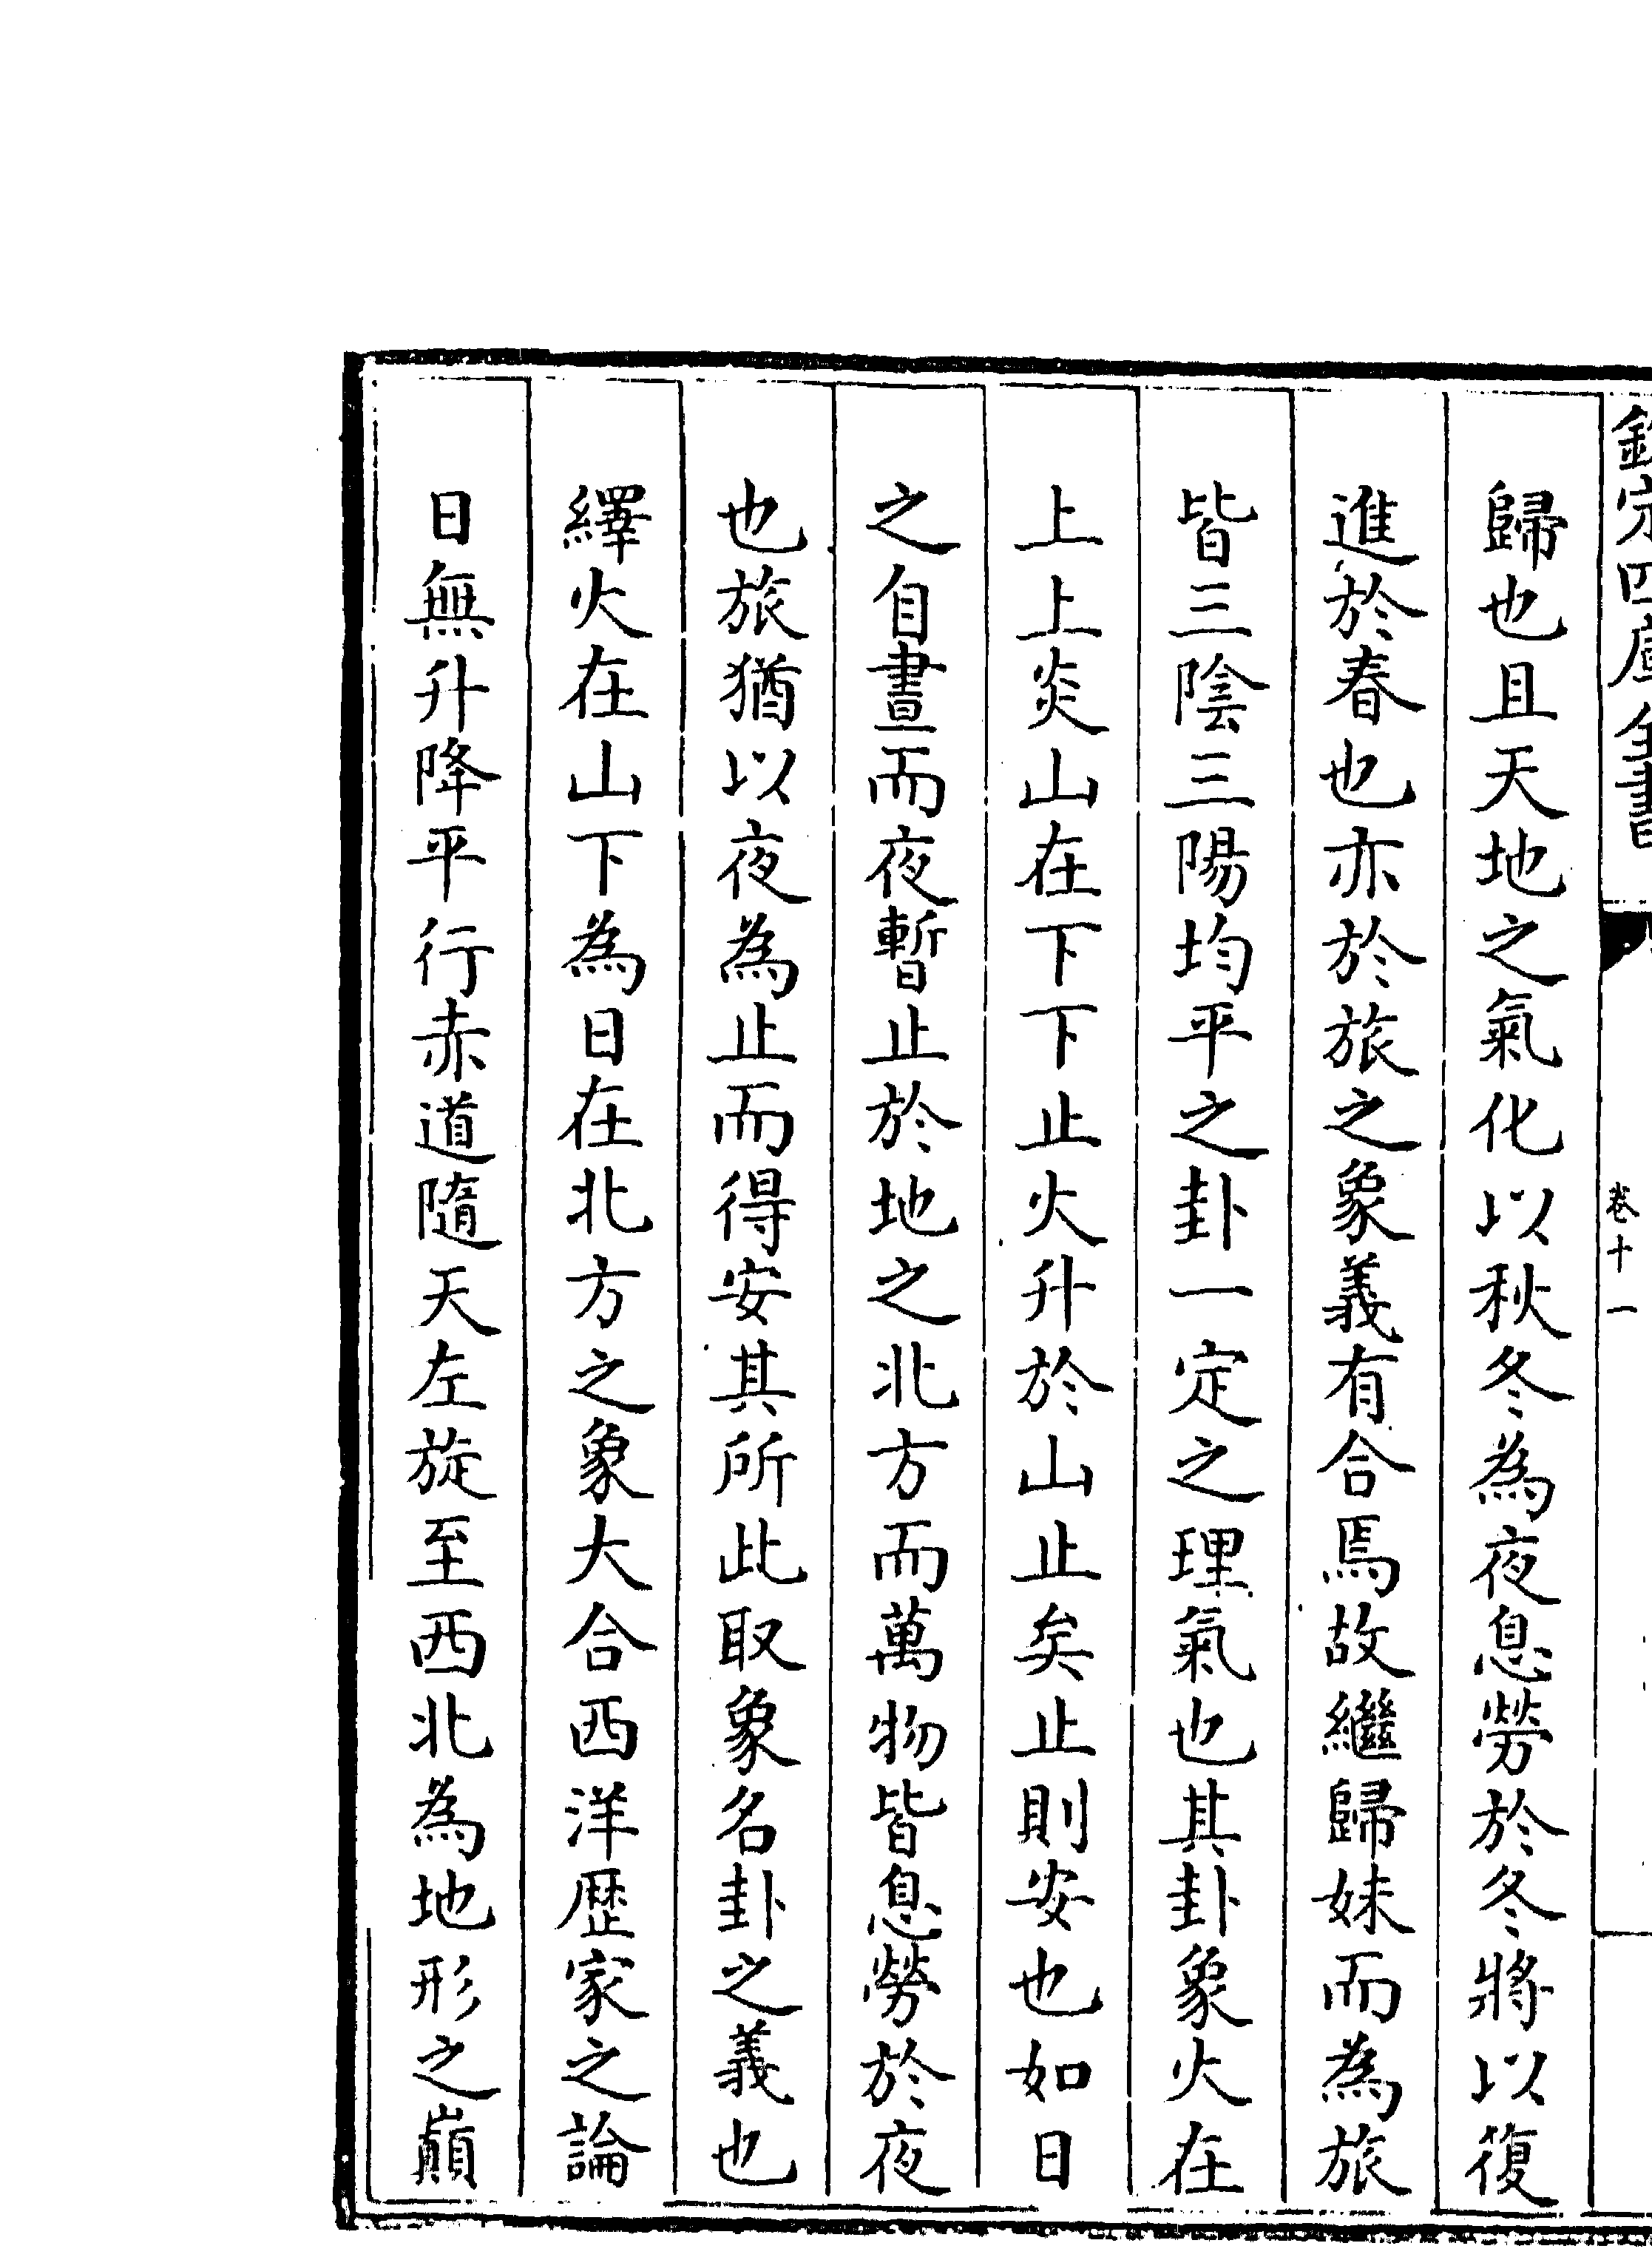 欽定四庫全書
卷十一
歸也且天地之氣化以秋冬為夜息勞於冬將以復
進於春也亦於旅之象義有合焉故繼歸妹而為旅
皆三陰三陽均平之卦一定之理氣也其卦象火在
上上炎山在下下止火升於山止矣止則安也如日
之自晝而夜暫止於地之北方而萬物皆息勞於夜
也旅猶以夜為止而得安其所此取象名卦之義也
繹火在山下為日在北方之象大合西洋歴家之論
日無升降平行赤道隨天左旋至西北為地形之巔